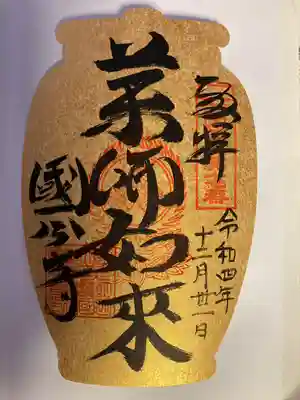 奉拝
令和四年
十二月廿一日
薬師如來
國分寺